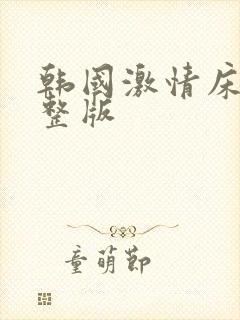 韩国激情床
整版
童萌节